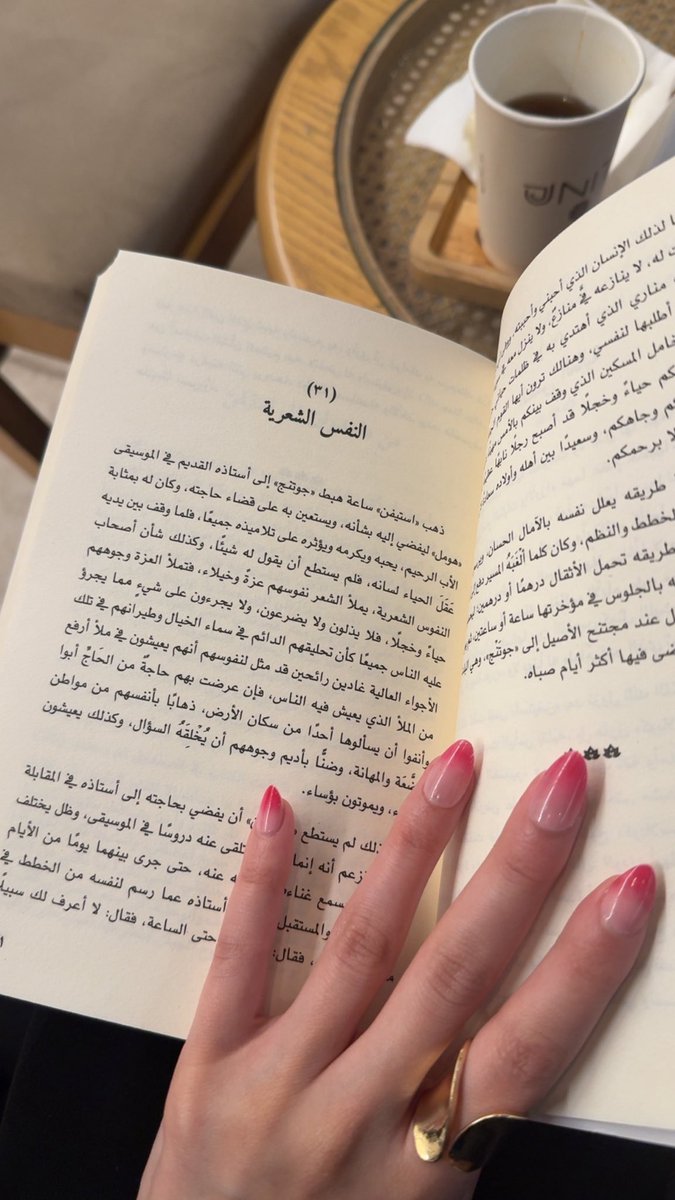 لذلك الإنسان الذي أحبني وأحببته
له، لا ينازعه فيَّ منازعٌ، ولا ينزل معه في
مناري الذي أهتدي به في ظلمات
أطلبها لنفسي، وهنالك ترون أيها القوم
الخامل المسكين الذي وقف بينكم بالأمس
حياءً وخجلًا قد أصبح رجلًا نابهًا
وجاهكم، وسعيدًا بين أهله وأولاده
لا يرحمكم.
طريقه يعلل نفسه بالآمال الحسان،
الخطط والنظم، وكان كلما أتْعَبَهُ المسير
طريقه تحمل الأثقال درهمًا أو درهمين
بالجلوس في مؤخرتها ساعة أو ساعتين
عند مجتنح الأصيل إلى «جوتنج»، وهي
فيها أكثر أيام صباه.
(٣١)
النفس الشعرية
ذهب «استيفن» ساعة هبط «جوتنج» إلى أستاذه القديم في الموسيقى
«هومل» ليفضي إليه بشأنه، ويستعين به على قضاء حاجته، وكان له بمثابة
الأب الرحيم، يحبه ويكرمه ويؤثره على تلاميذه جميعًا، فلما وقف بين يديه
عَقَلَ الحياء لسانه، فلم يستطع أن يقول له شيئًا، وكذلك شأن أصحاب
النفوس الشعرية، يملأ الشعر نفوسهم عزةً وخيلاء، فتملأ العزة وجوههم
حياءً وخجلًا، فلا يذلون ولا يضرعون، ولا يجرءون على شيءٍ مما يجرؤ
عليه الناس جميعًا كأن تحليقهم الدائم في سماء الخيال وطيرانهم في تلك
الأجواء العالية غادين رائحين قد مثل لنفوسهم أنهم يعيشون في ملأ أرفع
من الملأ الذي يعيش فيه الناس، فإن عرضت بهم حاجةٌ من الحَاجِّ أبوا
وأنفوا أن يسألوها أحدًا من سكان الأرض، ذهابًا بأنفسهم من مواطن
الضَّعَة والمهانة، وضنًّا بأديم وجوههم أن يُخْلِقَهُ السؤال، وكذلك يعيشون
ويموتون بؤساء.
لذلك لم يستطع أن يفضي بحاجته إلى أستاذه في المقابلة
فزعم أنه إنما يتلقى عنه دروسًا في الموسيقى، وظل يختلف
يسمع غناءه عنه، حتى جرى بينهما يومًا من الأيام
والمستقبل أستاذه عما رسم لنفسه من الخطط في
فقال: حتى الساعة، فقال: لا أعرف لك سبيلًا